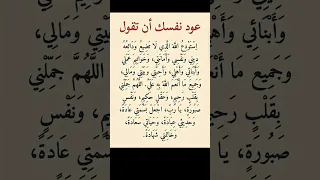 عود نفسك أن تقول
اِستَودِعُ اللهَ الَّذِي لَا تَضِيعُ وَدَائِعُه
دِينِي وَنَفْسِي وَأَمَانَتِي، وَخَوَاتِيمَ عَمَلِي
وَأَبْنَائِي وَأَهْلِي، وَأَحِبَّتِي وَبَيْتِي وَمَالِي،
وَجَمِيعَ مَا أَنْعَمَ اللهُ بِهِ عَلَيَّ. اللَّهُمَّ جَمِّلْنِي
بِقَلْبٍ رَحِيمٍ، وَعَقْلٍ حَكِيمٍ، وَنَفْسٍ
صَبُورَةٍ، يَا رَبِّ، اجْعَلْ بَسْمَتِي عَادَةً،
وَحَدِيثِي عِبَادَةً، وَحَيَاتِي سَعَادَةً،
وَخَاتِمَتِي شَهَادَةً.